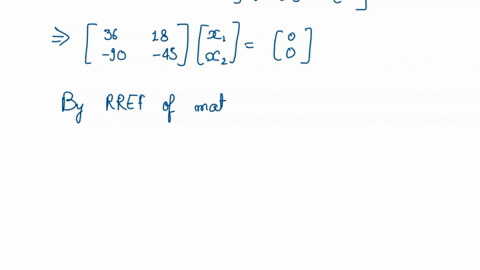 ⇒ [36 18 -90 -45] [x₁ x₂] = [0 0]
By RREF of mat